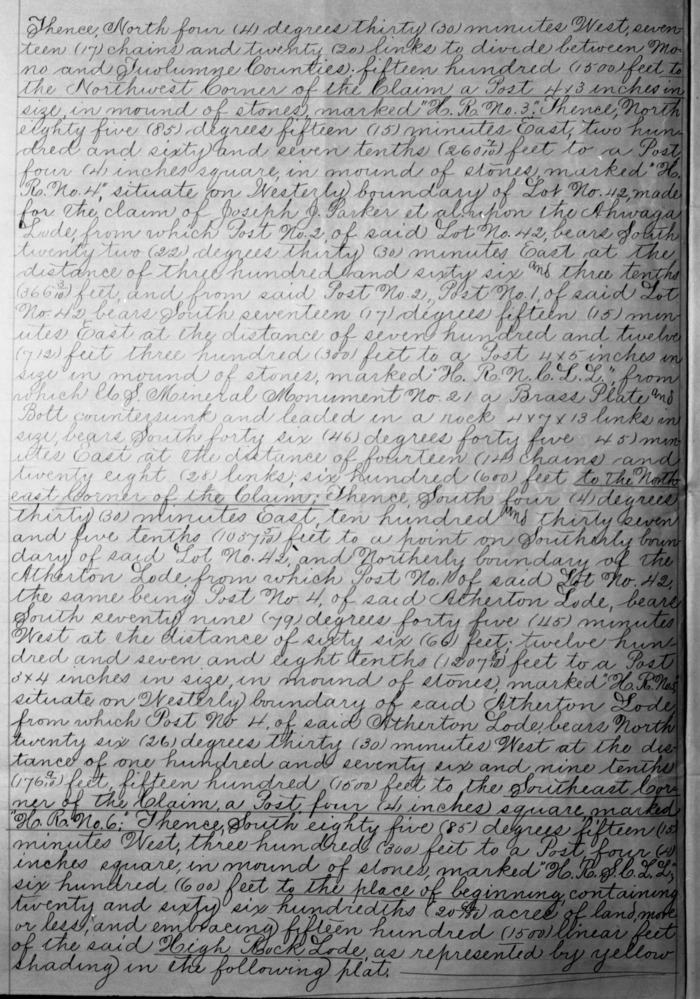 Thence, North four (4) degrees thirty (30) minutes West, seven-
teen (17) chains and twenty (20) links to divide between Mo-
no and Tuolumne Counties; fifteen hundred (1500) feet to
the Northwest Corner of the Claim, a Post 4x3 inches in
size, in mound of stones, marked "H. R. No. 3"; Thence, North
eighty five (85) degrees fifteen (15) minutes East, two hun-
dred and sixty and seven tenths (260 7/10) feet to a Post
four (4) inches square, in mound of stones, marked "H.
R. No. 4," situate on Westerly boundary of Lot No. 42, made
for the claim of Joseph J. Parker et al. upon the Ahwaga
Lode, from which Post No. 2, of said Lot No. 42, bears South
twenty two (22) degrees thirty (30) minutes East at the
distance of three hundred and sixty six and three tenths
(366 3/10) feet, and from said Post No. 2, Post No. 1, of said Lot
No. 42 bears South seventeen (17) degrees fifteen (15) min-
utes East at the distance of seven hundred and twelve
(712) feet three hundred (300) feet to a Post 4x5 inches in
size in mound of stones, marked "H. R. N. C. L. L.", from
which U.S. Mineral Monument No. 21 a Brass Plate and
Bott countersunk and leaded in a rock 4x7x13 links in
size, bears South forty six (46) degrees forty five 45) min-
utes East at the distance of fourteen (14) chains and
twenty eight (28) links; six hundred (600) feet to the North-
east Corner of the Claim; Thence, South four (4) degrees
thirty (30) minutes East, ten hundred and thirty seven
and five tenths (1037 5/10) feet to a point on Southerly boun-
dary of said Lot No. 42, and Northerly boundary of the
Atherton Lode, from which Post No. 1 of said Lot No. 42,
the same being Post No. 4, of said Atherton Lode, bears
South seventy nine (79) degrees forty five (45) minutes
West at the distance of sixty six (66) feet; twelve hun-
dred and seven and eight tenths (1207 8/10) feet to a Post
3x4 inches in size, in mound of stones, marked "H. R. No. 5,"
situate on Westerly boundary of said Atherton Lode,
from which Post No 4, of said Atherton Lode, bears North
twenty six (26) degrees thirty (30) minutes West at the dis-
tance of one hundred and seventy six and nine tenths
(176 9/10) feet, fifteen hundred (1500) feet to the Southeast Cor-
ner of the Claim, a Post four (4) inches square, marked
"H. R. No. 6;" Thence, South eighty five (85) degrees fifteen (15)
minutes West, three hundred (300) feet to a Post four (4)
inches square, in mound of stones, marked "H. R. S. C. L. L.",
six hundred (600) feet to the place of beginning, containing
twenty and sixty six hundredths (20 66/100) acres of land, more
or less, and embracing fifteen hundred (1500) linear feet
of the said High Rock Lode, as represented by yellow
shading in the following plat.